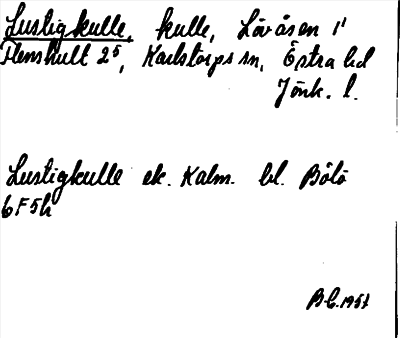 Lustigkulle, kulle, Lövåsen 1¹
Flenshult 2⁵, Karlstorps sn, Östra hd
Jönk. l.
Lustigkulle ek. Kalm. bl. Bölö
6F5h
B.C. 1957